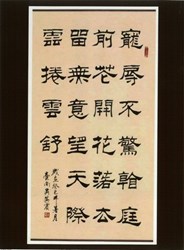 寵辱不驚看庭
前花開花落去
留無意望天際
雲捲雲舒